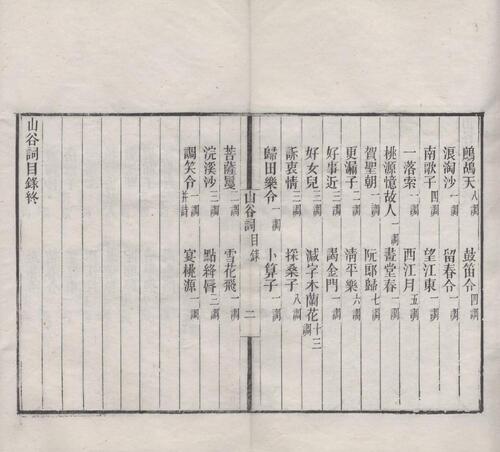 鷓鴣天八調 鼓笛令四調
浪淘沙一調 留春令一調
南歌子四調 望江東一調
一落索一調 西江月五調
桃源憶故人一調 畫堂春一調
賀聖朝一調 阮郎歸七調
更漏子二調 清平樂六調
好事近三調 謁金門一調
好女兒三調 減字木蘭花十三調
訴衷情三調 採桑子八調
歸田樂令一調 卜算子一調
山谷詞目錄 二
菩薩蠻二調 雪花飛一調
浣溪沙三調 點絳唇三調
調笑令一調并詩 宴桃源一調
山谷詞目錄終